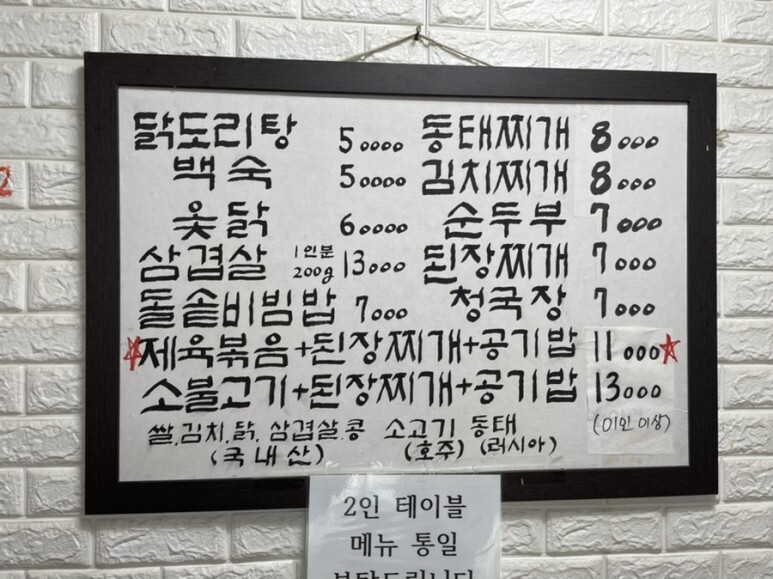 닭도리탕 50000 동태찌개 8000
백숙 50000 김치찌개 8000
옻닭 60000 순두부 7000
삼겹살 1인분 200g 13000 된장찌개 7000
돌솥비빔밥 7000 청국장 7000
☆제육볶음+된장찌개+공기밥 11000☆
소불고기+된장찌개+공기밥 13000
(2인 이상)
쌀,김치,닭, 삼겹살.콩 소고기 동태
(국내산) (호주) (러시아)
2인 테이블
메뉴 통일
부탁드립니다
2